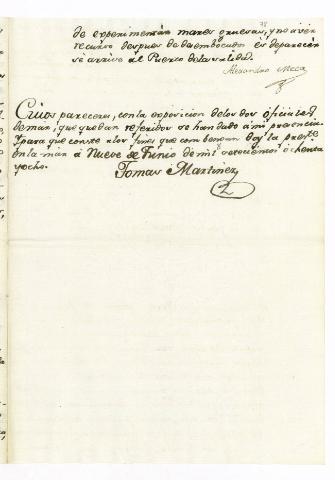 78
de experimentar mares gruesas, y no haver
recurso despues de desembocados es de parecer
se arrive al Puerto de la salida.
Alexandro
Cuios pareceres, con la exposicion de los dos oficiales
de mar, que quedan referidos se han dado a mi presencia
Y para que conste a los fines que combengan doy la preste
en la mar á Nueve de Junio de mil setecientos ochenta
y ocho.
Tomas Martinez